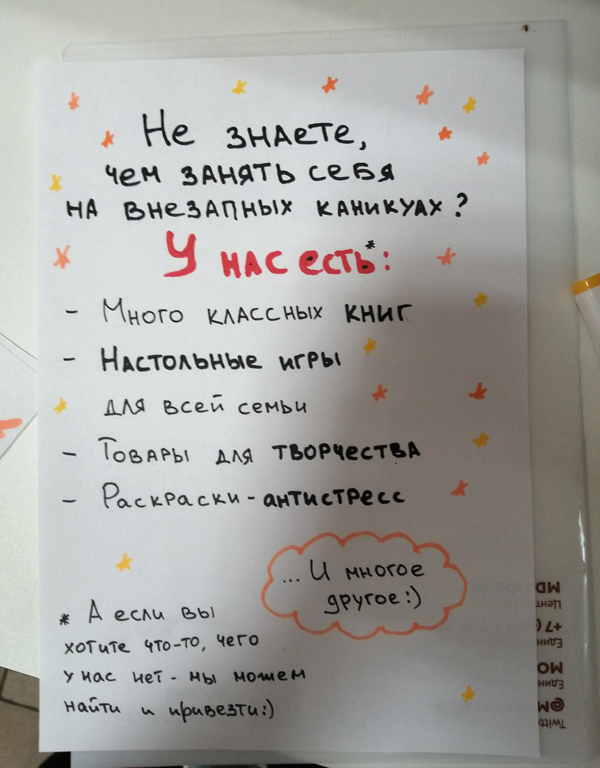 Не знаете,
чем занять себя
на внезапных каникуах?
У нас есть*:
- Много классных книг
- Настольные игры
для всей семьи
- Товары для творчества
- Раскраски-антистресс
... И многое
другое:)
* А если вы
хотите что-то, чего
у нас нет - мы можем
найти и привезти:)